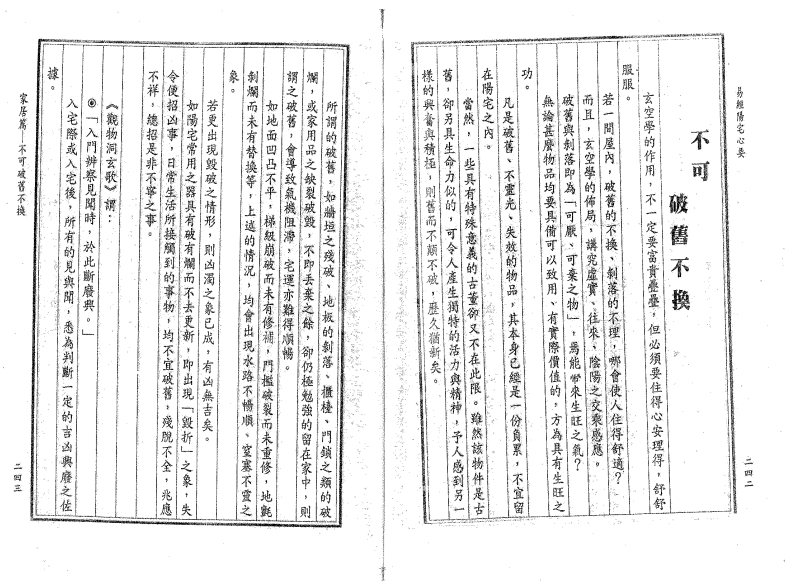 易經陽宅心要
二四二
不可破舊不換
玄空學的作用，不一定要富貴疊疊，但必須要住得心安理得，舒舒
服服。
若一間屋內，破舊的不換、剝落的不理，哪會使人住得舒適？
而且，玄空學的佈局，講究虛實、往來、陰陽之交乘感應。
破舊與剝落即為「可厭、可棄之物」，焉能帶來生旺之氣？
無論甚麼物品均要具備可以致用、有實際價值的，方為具有生旺之
功。
凡是破舊、不靈光、失效的物品，其本身已經是一份負累，不宜留
在陽宅之內。
當然，一些具有特殊意義的古董卻又不在此限。雖然該物件是古
舊，卻另具生命力似的，可令人產生獨特的活力與精神，予人感到另一
樣的興奮與積極，則舊而不顯不破，歷久猶新矣。
所謂的破舊，如牆垣之殘破、地板的剝落、櫃檯、門鎖之類的破
爛，或家用品之缺裂破毀，不即丟棄之餘，卻仍極勉強的留在家中，則
謂之破舊，會導致氣機阻滯，宅運亦難得順暢。
如地面凹凸不平，梯級崩破而未有修補，門檻破裂而未重修，地氈
剝爛而未有替換等，上述的情況，均會出現水路不暢順、窒塞不靈之
象。
若更出現毀破之情形，則凶濁之象已成，有凶無吉矣。
如陽宅常用之器具有破有爛而不去更新，即出現「毀折」之象，失
令便招凶事，日常生活所接觸到的事物，均不宜破舊，殘脫不全，兆應
不祥，總招是非不寧之事。
《觀物洞玄歌》謂：
◉「入門辨察見聞時，於此斷廢興。」
入宅際或入宅後，所有的見與聞，悉為判斷一定的吉凶興廢之佐
據。
家居篇—不可破舊不換
二四三